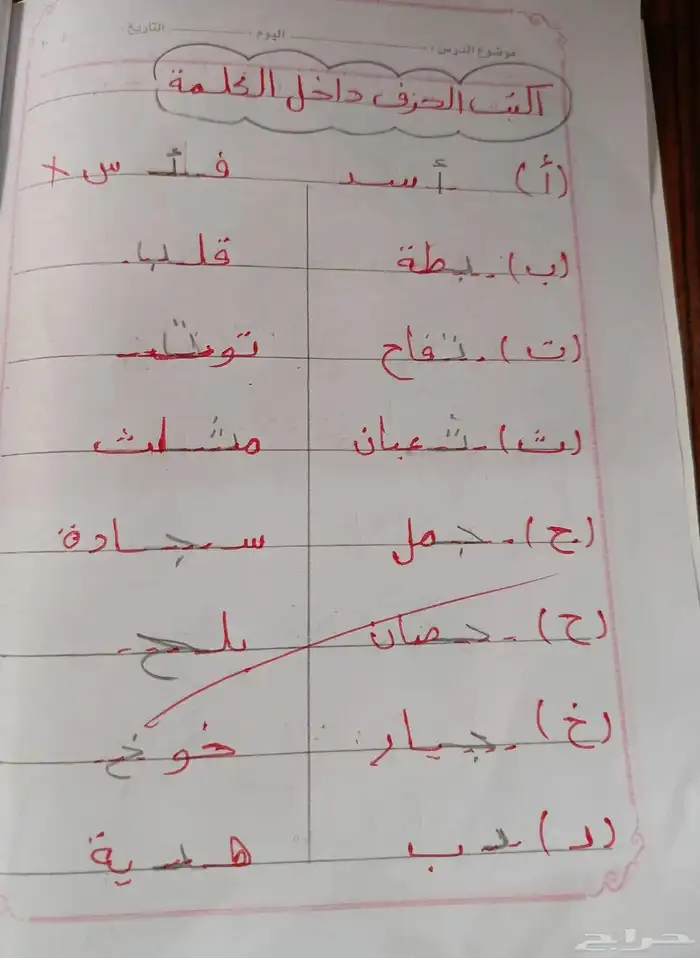 موضوع الدرس : اليوم التاريخ
اكتب الحرف داخل الكلمة
(أ) أسد فأس ×
(ب) بطة قلب
(ت) تفاح توت
(ث) ثعبان مثلث
(ج) جمل سجادة
(ح) حصان بلح
(خ) جيار خوخ
(د) دب هدية
حراج